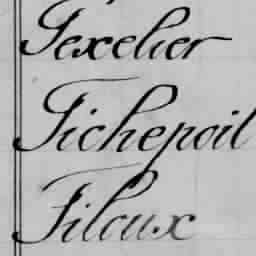 Texelier
Tichepoil
Tiloux